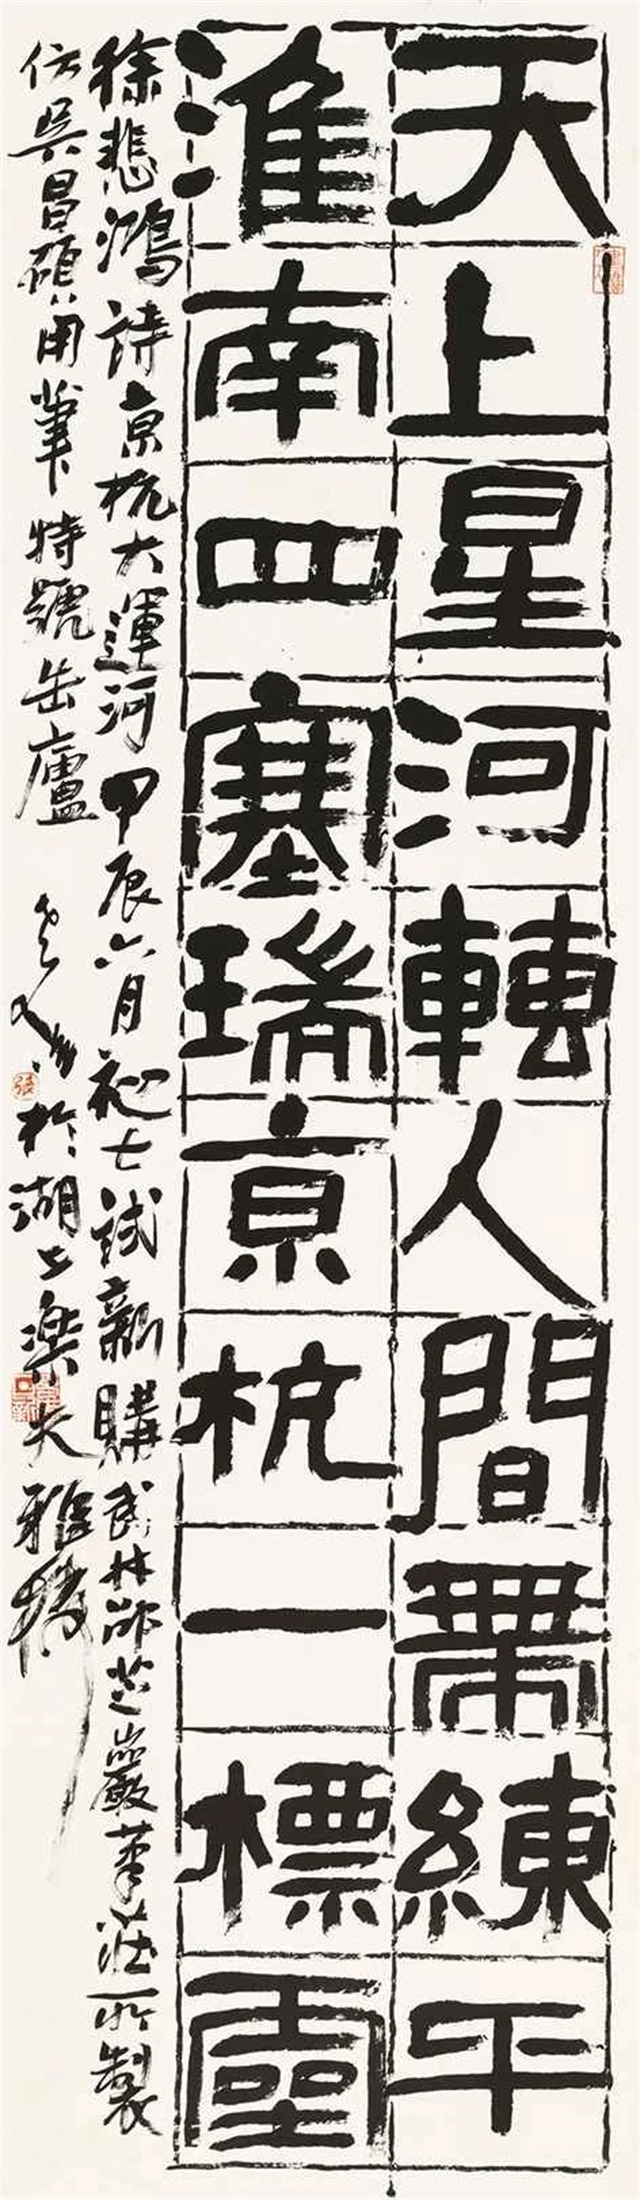 天上星河轉人間帶練平
淮南四塞瑞京杭一標靈
徐悲鴻詩京杭大運河甲辰六月初七試新購武林邵芝巖筆莊所製
仿吴昌碩用筆特號缶廬 於湖上樂天雅樓
張